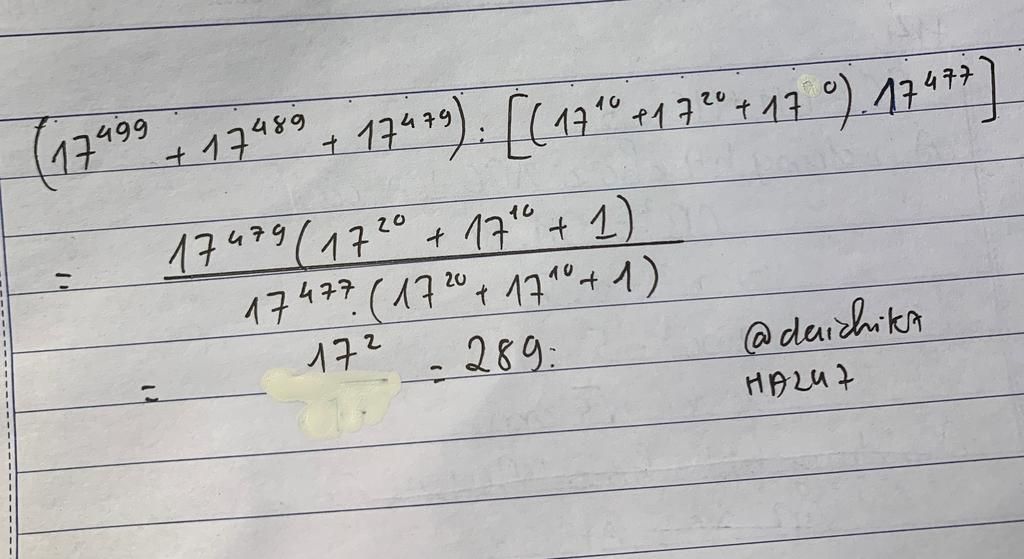 (17⁴⁹⁹ + 17⁴⁸⁹ + 17⁴⁷⁹) : [(17¹⁰ + 17²⁰ + 17⁰) . 17⁴⁷⁷]
= 17⁴⁷⁹ (17²⁰ + 17¹⁰ + 1)
17⁴⁷⁷ . (17²⁰ + 17¹⁰ + 1)
= 17² = 289.
@daichika
HA247